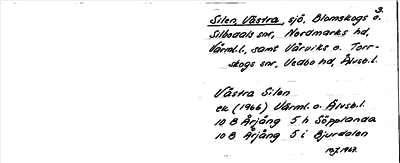 3.
Silen, Västra, sjö, Blomskogs o.
Silbodals snr, Nordmarks hd,
Värml.l., samt Vårviks o. Torr-
skogs snr, Vedbo hd, Älvsb.l.
Västra Silen
ek (1966) Värml. o. Älvsb.l.
10 B Årjäng 5 h Söpplanda
10 B Årjäng 5 i Bjurdalen
1967.